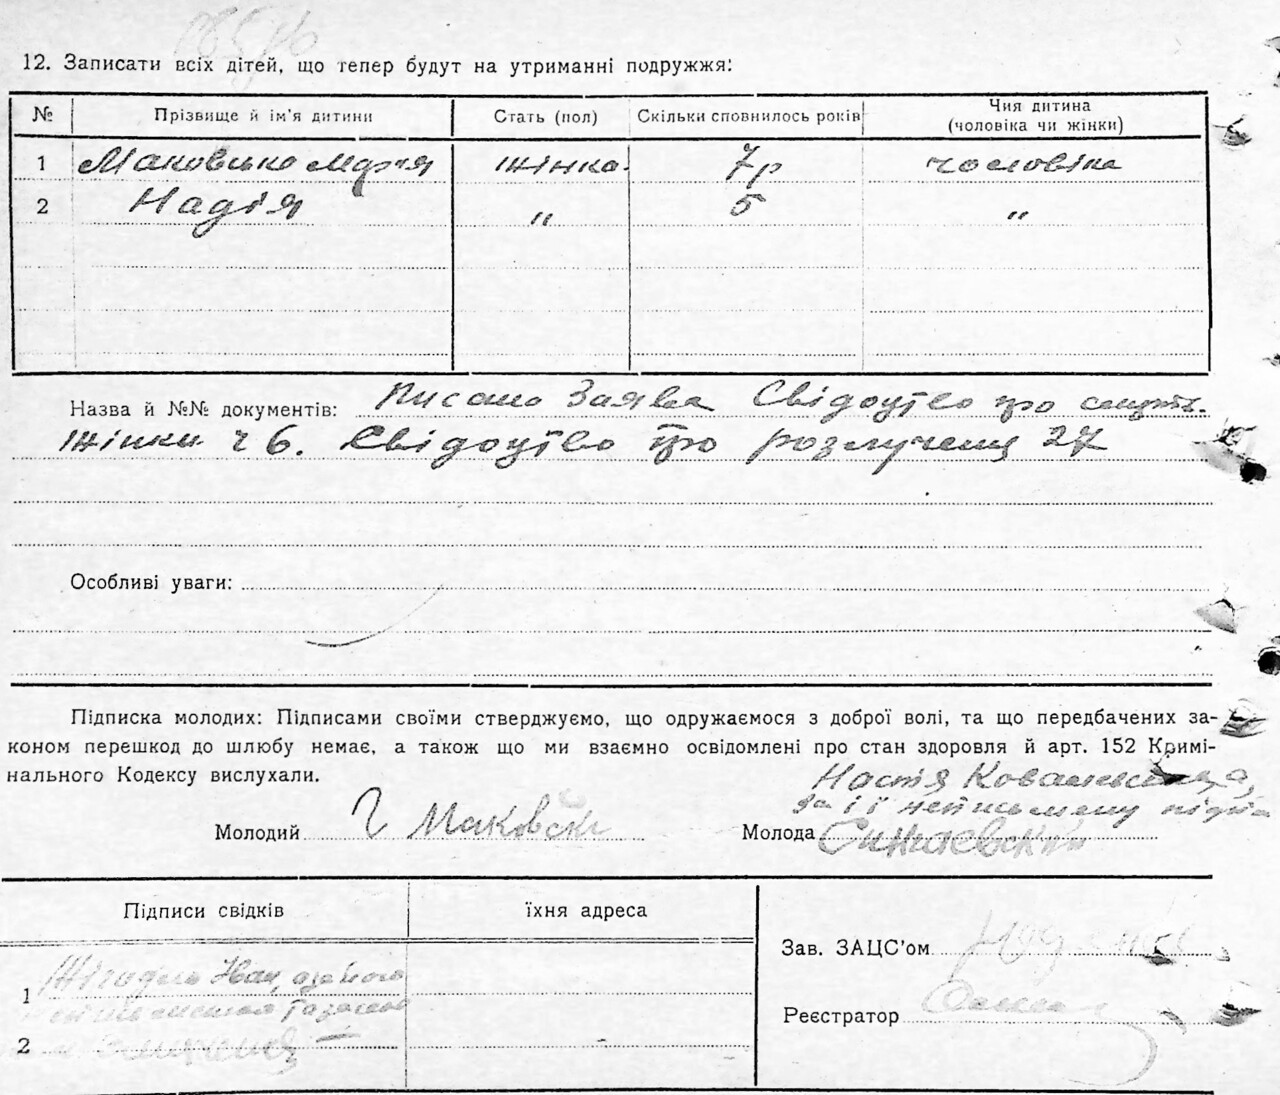 12. Записати всіх дітей, що тепер будут на утриманні подружжя:
№ Прізвище й ім'я дитини Стать (пол) Скільки сповнилось років Чия дитина
(чоловіка чи жінки)
1 Маковсько Марія жінка. 7р чоловіка
2 Надія " 5 "
Назва й №№ документів: Писано Заява Свідоцтво про смерть
жінки ч 6. Свідоцтво про розлучення 27
Особливі уваги:
Підписка молодих: Підписами своїми стверджуємо, що одружаемося з доброї волі, та що передбачених за-
коном перешкод до шлюбу немає, а також що ми взаємно освідомлені про стан здоровля й арт. 152 Кримі-
нального Кодексу вислухали.
Настя
за її неписьмену
Молодий Маковськ Молода
Підписи свідків їхня адреса
Зав. ЗАЦС'ом
1 Іван
Реєстратор
2